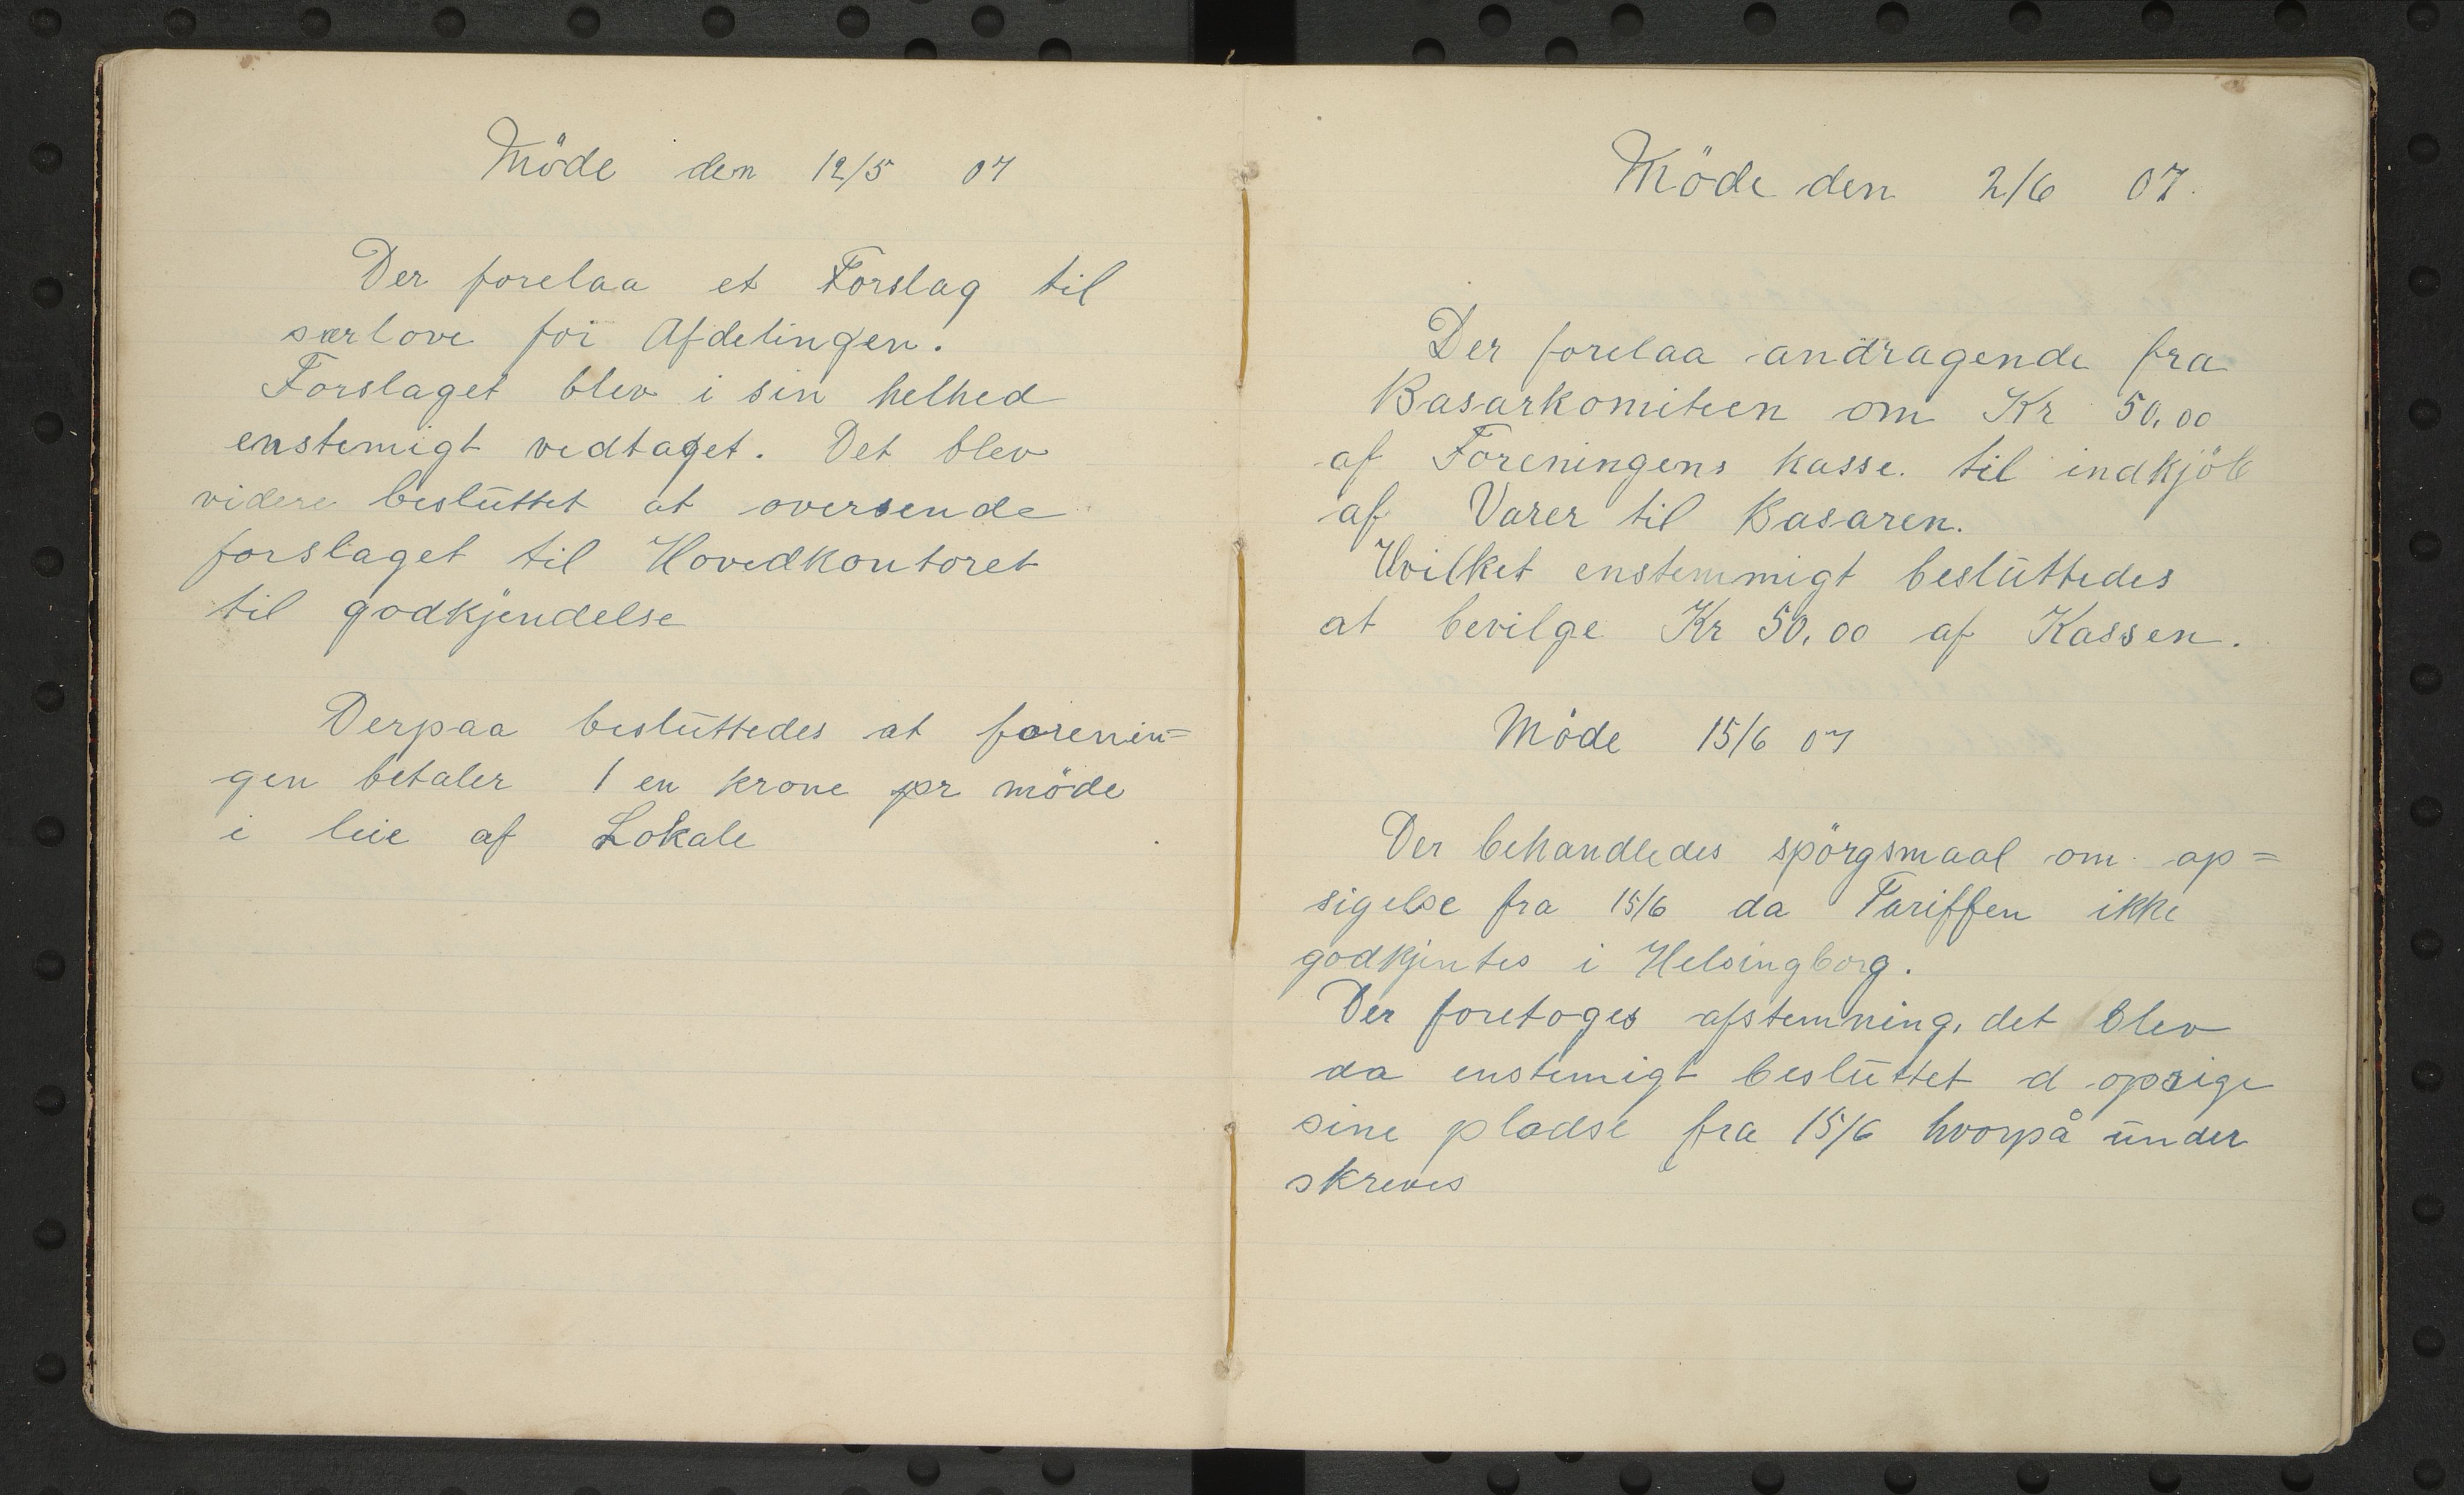 Möde den 12/5 07
Der forelaa et Forslag til
særlove for Afdelingen.
Forslaget blev i sin helhed
enstemigt vedtaget. Det blev
videre besluttet at oversende
forslaget til Hovedkontoret
til godkjendelse
Derpaa besluttedes at forenin=
gen betaler 1 en krone pr möde
i leie af Lokale
Möde den 2/6 07.
Der forelaa andragende fra
Basarkomiteen om Kr 50,00
af Foreningens kasse. til indkjöb
af Varer til Basaren.
Hvilket enstemmigt besluttedes
at bevilge Kr 50,00 af Kassen.
Möde 15/6 07
Der behandledes spörgsmaal om op=
sigelse fra 15/6 da Tariffen ikke
godkjentes i Helsingborg.
Der foretoges afstemning, det blev
da enstemigt besluttet d opsige
sine pladse fra 15/6 hvorpå under
skreves